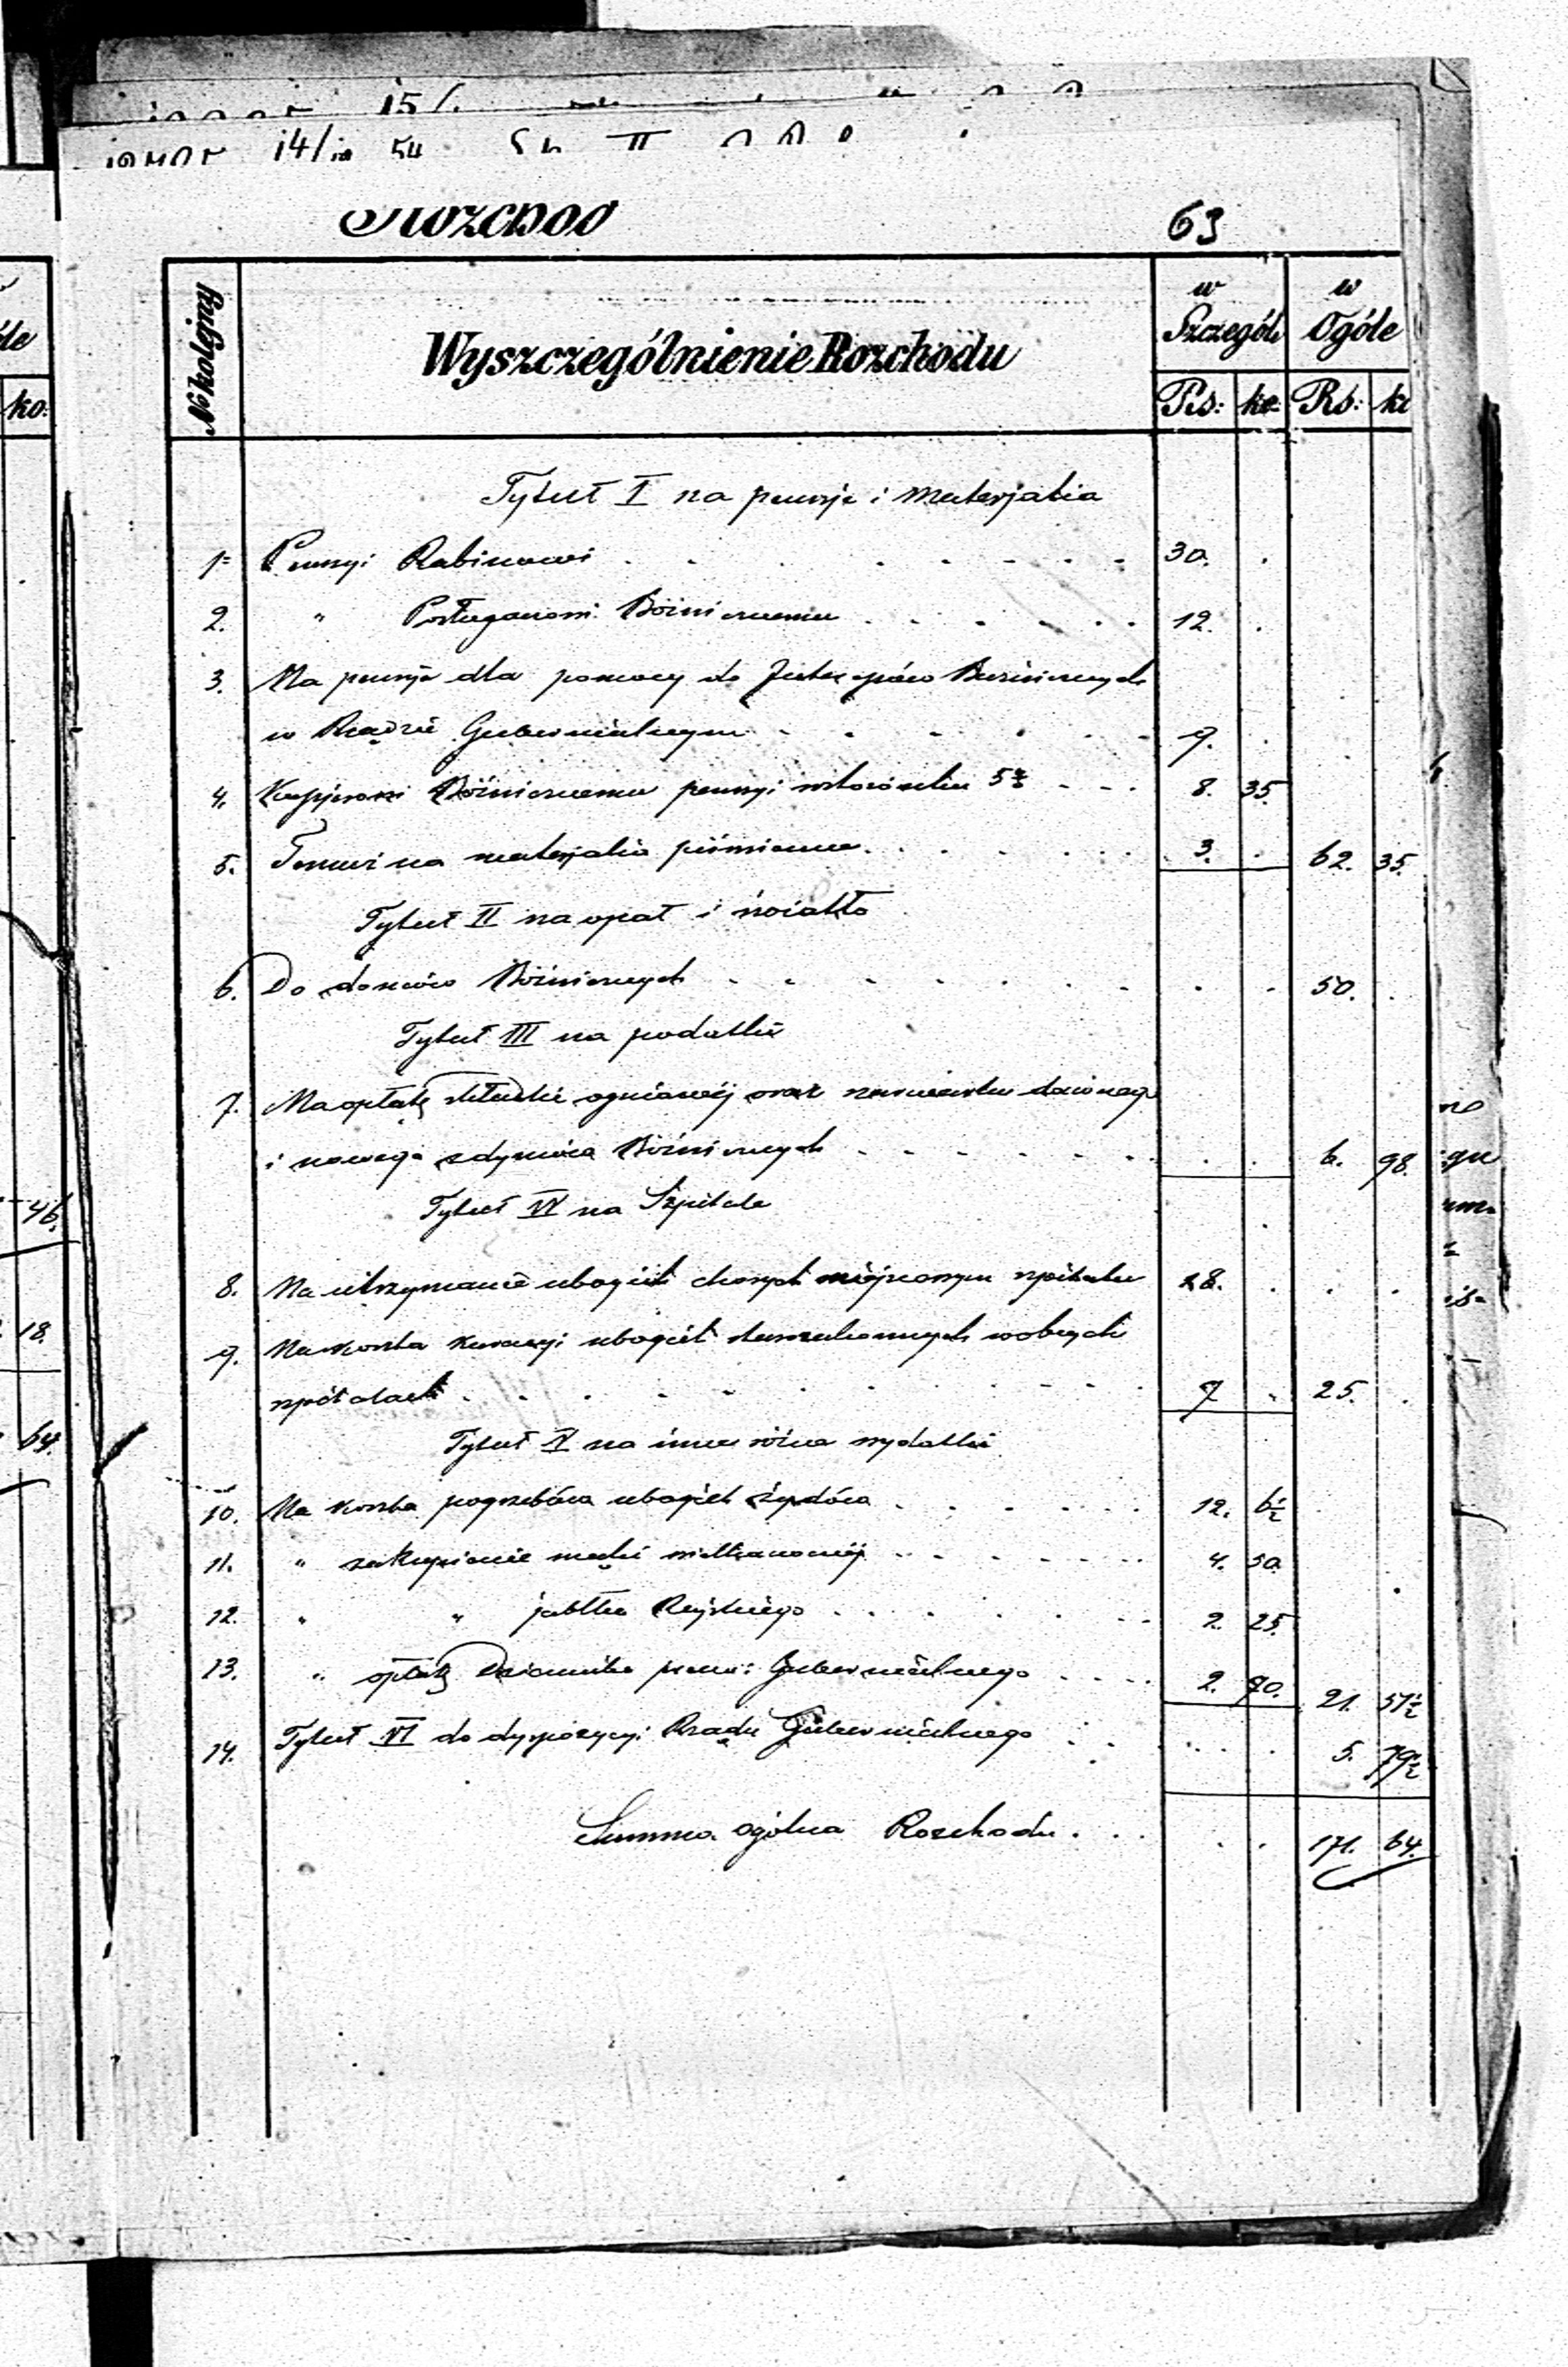 Rozchód
63
No kolejny
Wyszczególnienie Rozchodu
w Szczegól:
w Ogóle
Rs: ko: Rs: ko
Tytuł I na pensje i materjalia
1. Pensyi Rabinowi 30.
2. " Posługaczowi Bożnicznemu 12.
3. Na pensje dla pomocy do Bóżnicznych
w Rządzie Gubernialnym 9.
4. Kassjerowi Bóżnicznemu pensyi 5 8. 35.
5. na materjalia piśmienne 3. 62. 35.
Tytuł II na opał i światło
6. Do domów Bóżnicznych 50.
Tytuł III na podatki
7. Na opłatę składki ogniowej oraz dawnego
i nowego Bóżnicznych 6. 98.
Tytuł IV na Szpitale
8. Na utrzymanie ubogich chorych miejscowym szpitalu 18.
9. Na koszta kuracyi ubogich w obcych
szpitalach 7 25.
Tytuł V na inne różne wydatki
10. Na koszta pogrzebów ubogich żydów 12. 6½
11. " zakupienie mąki 4. 50.
12. " " jabłka Rajskiego 2. 25.
13. " opłatę Dziennika Gubernialnego 2. 70. 21. 51½
14. Tytuł VI do dyspozycyi Rządu Gubernialnego 5. 79½
Summa ogólna Rozchodu 171. 64.